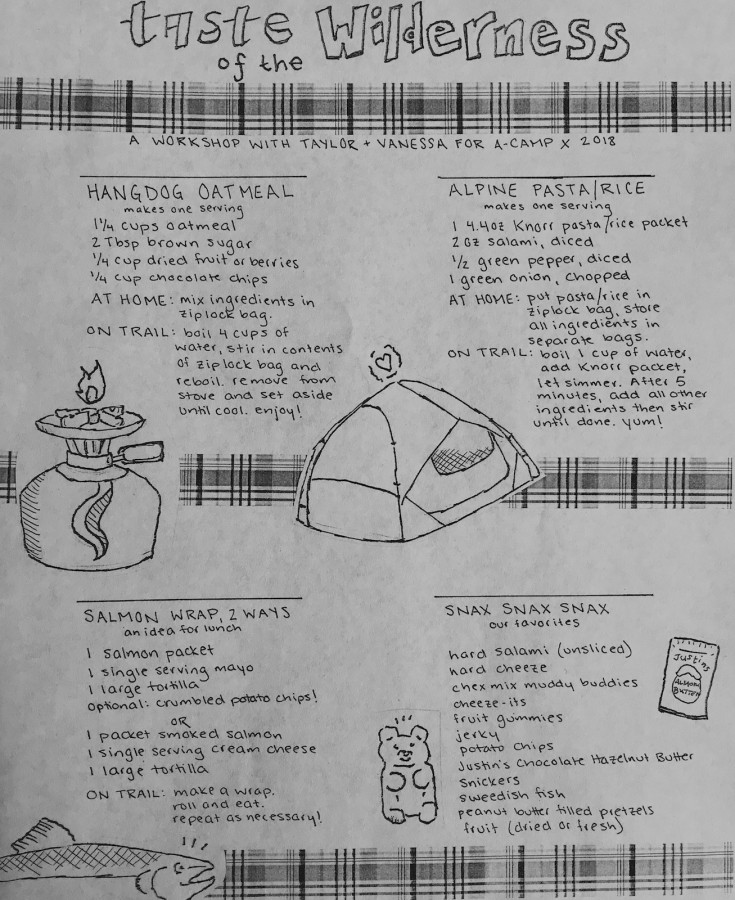 taste
of the
Wilderness
A WORKSHOP WITH TAYLOR + VANESSA FOR A-CAMP X 2018
HANGDOG OATMEAL
makes one serving
1 1/4 cups oatmeal
2 Tbsp brown sugar
1/4 cup dried fruit or berries
1/4 cup chocolate chips
AT HOME: mix ingredients in
ziplock bag.
ON TRAIL: boil 4 cups of
water, stir in contents
of ziplock bag and
reboil. remove from
stove and set aside
until cool. enjoy!
ALPINE PASTA/RICE
makes one serving
1 4.4oz Knorr pasta/rice packet
2 oz salami, diced
1/2 green pepper, diced
1 green onion, chopped
AT HOME: put pasta/rice in
ziplock bag, store
all ingredients in
separate bags.
ON TRAIL: boil 1 cup of water,
add Knorr packet,
let simmer. After 5
minutes, add all other
ingredients then stir
until done. yum!
SALMON WRAP, 2 WAYS
an idea for lunch
1 salmon packet
1 single serving mayo
1 large tortilla
optional: crumbled potato chips!
OR
1 packet smoked salmon
1 single serving cream cheese
1 large tortilla
ON TRAIL: make a wrap.
roll and eat.
repeat as necessary!
SNAX SNAX SNAX
our favorites
hard salami (unsliced)
hard cheeze
chex mix muddy buddies
cheeze-its
fruit gummies
jerky
potato chips
Justin's Chocolate Hazelnut Butter
Snickers
sweedish fish
peanut butter filled pretzels
fruit (dried or fresh)
Justins
ALMOND
BUTTER